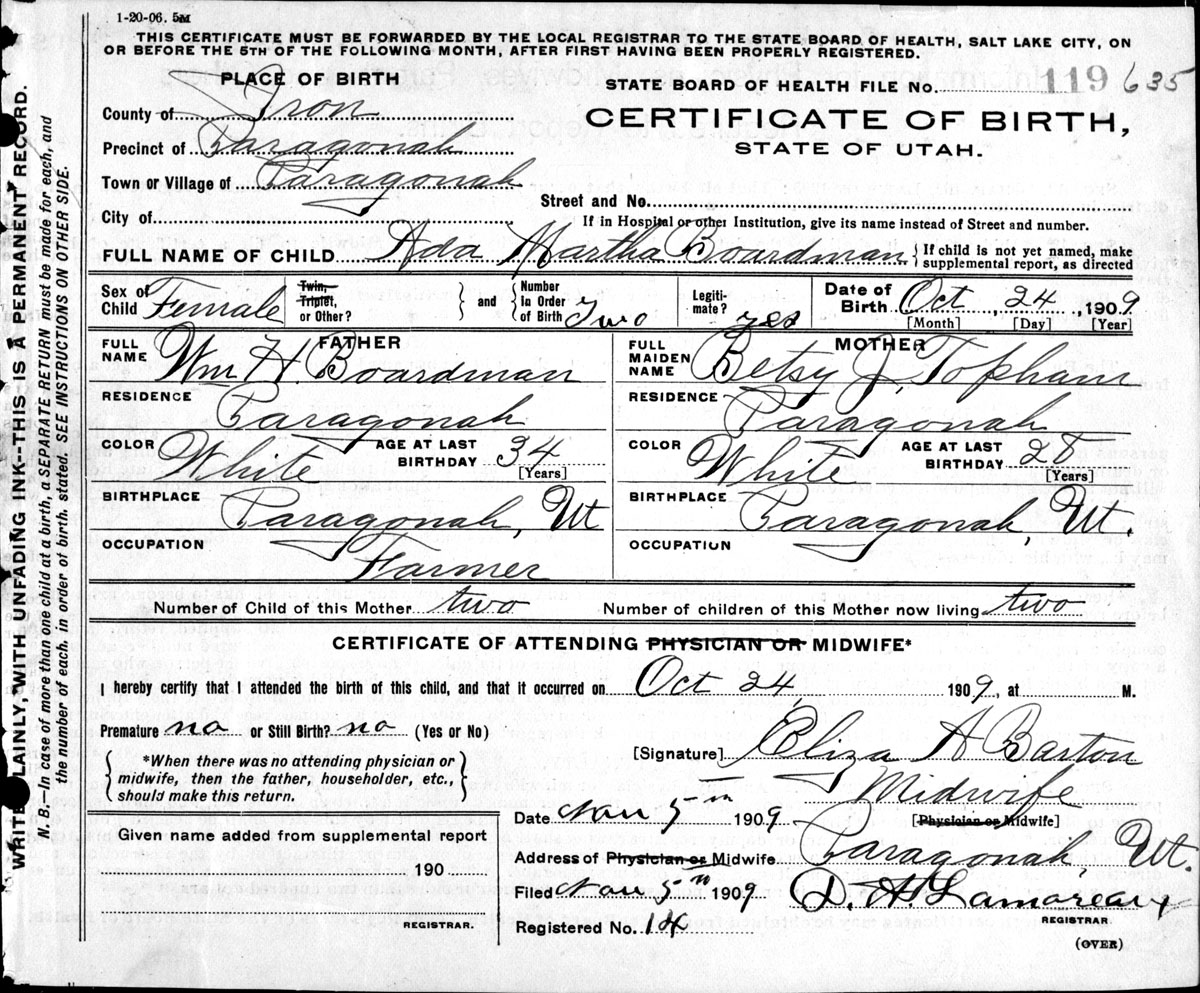 1-20-06. 5M
THIS CERTIFICATE MUST BE FORWARDED BY THE LOCAL REGISTRAR TO THE STATE BOARD OF HEALTH, SALT LAKE CITY, ON
OR BEFORE THE 5TH OF THE FOLLOWING MONTH, AFTER FIRST HAVING BEEN PROPERLY REGISTERED.
PLACE OF BIRTH
STATE BOARD OF HEALTH FILE No. 119 635
County of Iron
CERTIFICATE OF BIRTH,
STATE OF UTAH.
Precinct of Paragonah
Town or Village of Paragonah
Street and No.
City of
If in Hospital or other Institution, give its name instead of Street and number.
FULL NAME OF CHILD Ada Martha Boardman { If child is not yet named, make
supplemental report, as directed
Sex of Child Female
Twin, Triplet, or Other? } and { Number In Order of Birth Two
Legiti- mate? yes
Date of Birth Oct 24, 1909
[Month] [Day] [Year]
FATHER
FULL NAME Wm H. Boardman
RESIDENCE Paragonah
COLOR White AGE AT LAST BIRTHDAY 34 [Years]
BIRTHPLACE Paragonah, Ut
OCCUPATION Farmer
MOTHER
FULL MAIDEN NAME Betsy J. Topham
RESIDENCE Paragonah
COLOR White AGE AT LAST BIRTHDAY [Years]
BIRTHPLACE Paragonah, Ut.
OCCUPATION
Number of Child of this Mother two Number of children of this Mother now living two
CERTIFICATE OF ATTENDING PHYSICIAN OR MIDWIFE*
I hereby certify that I attended the birth of this child, and that it occurred on Oct 24, 1909, at M.
Premature no or Still Birth? no (Yes or No)
[Signature] Eliza A Barton
Midwife
[Physician or Midwife]
{ *When there was no attending physician or
midwife, then the father, householder, etc.,
should make this return. }
Date Nov 5th 1909
Address of Physician or Midwife Paragonah, Ut.
Filed Nov 5th 1909 D. A. Lamoreaux
REGISTRAR
Registered No. 14
(OVER)
Given name added from supplemental report
190
REGISTRAR.
WRITE PLAINLY, WITH UNFADING INK--THIS IS A PERMANENT RECORD.
N. B.—In case of more than one child at a birth, a SEPARATE RETURN must be made for each, and
the number of each, in order of birth, stated. SEE INSTRUCTIONS ON OTHER SIDE.